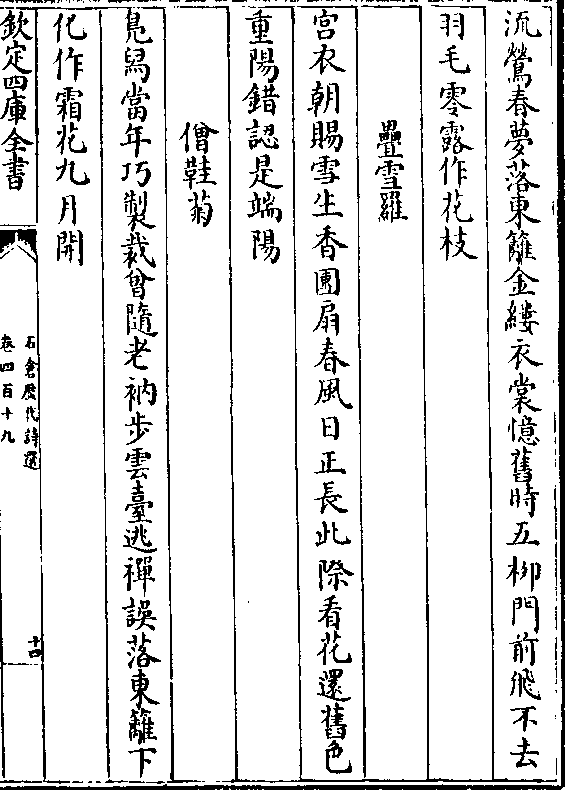 流鶯春夢落東籬金縷衣裳憶舊時五柳門前飛不去
羽毛零露作花枝
疊雪羅
宫衣朝賜雪生香團扇春風日正長此際看花還舊色
重陽錯認是端陽
僧鞋菊
鳬舄當年巧製裁曾隨老衲步雲臺逃禪誤落東籬下
化作霜花九月開
欽定四庫全書
石倉歷代詩選
卷四百十九
十四